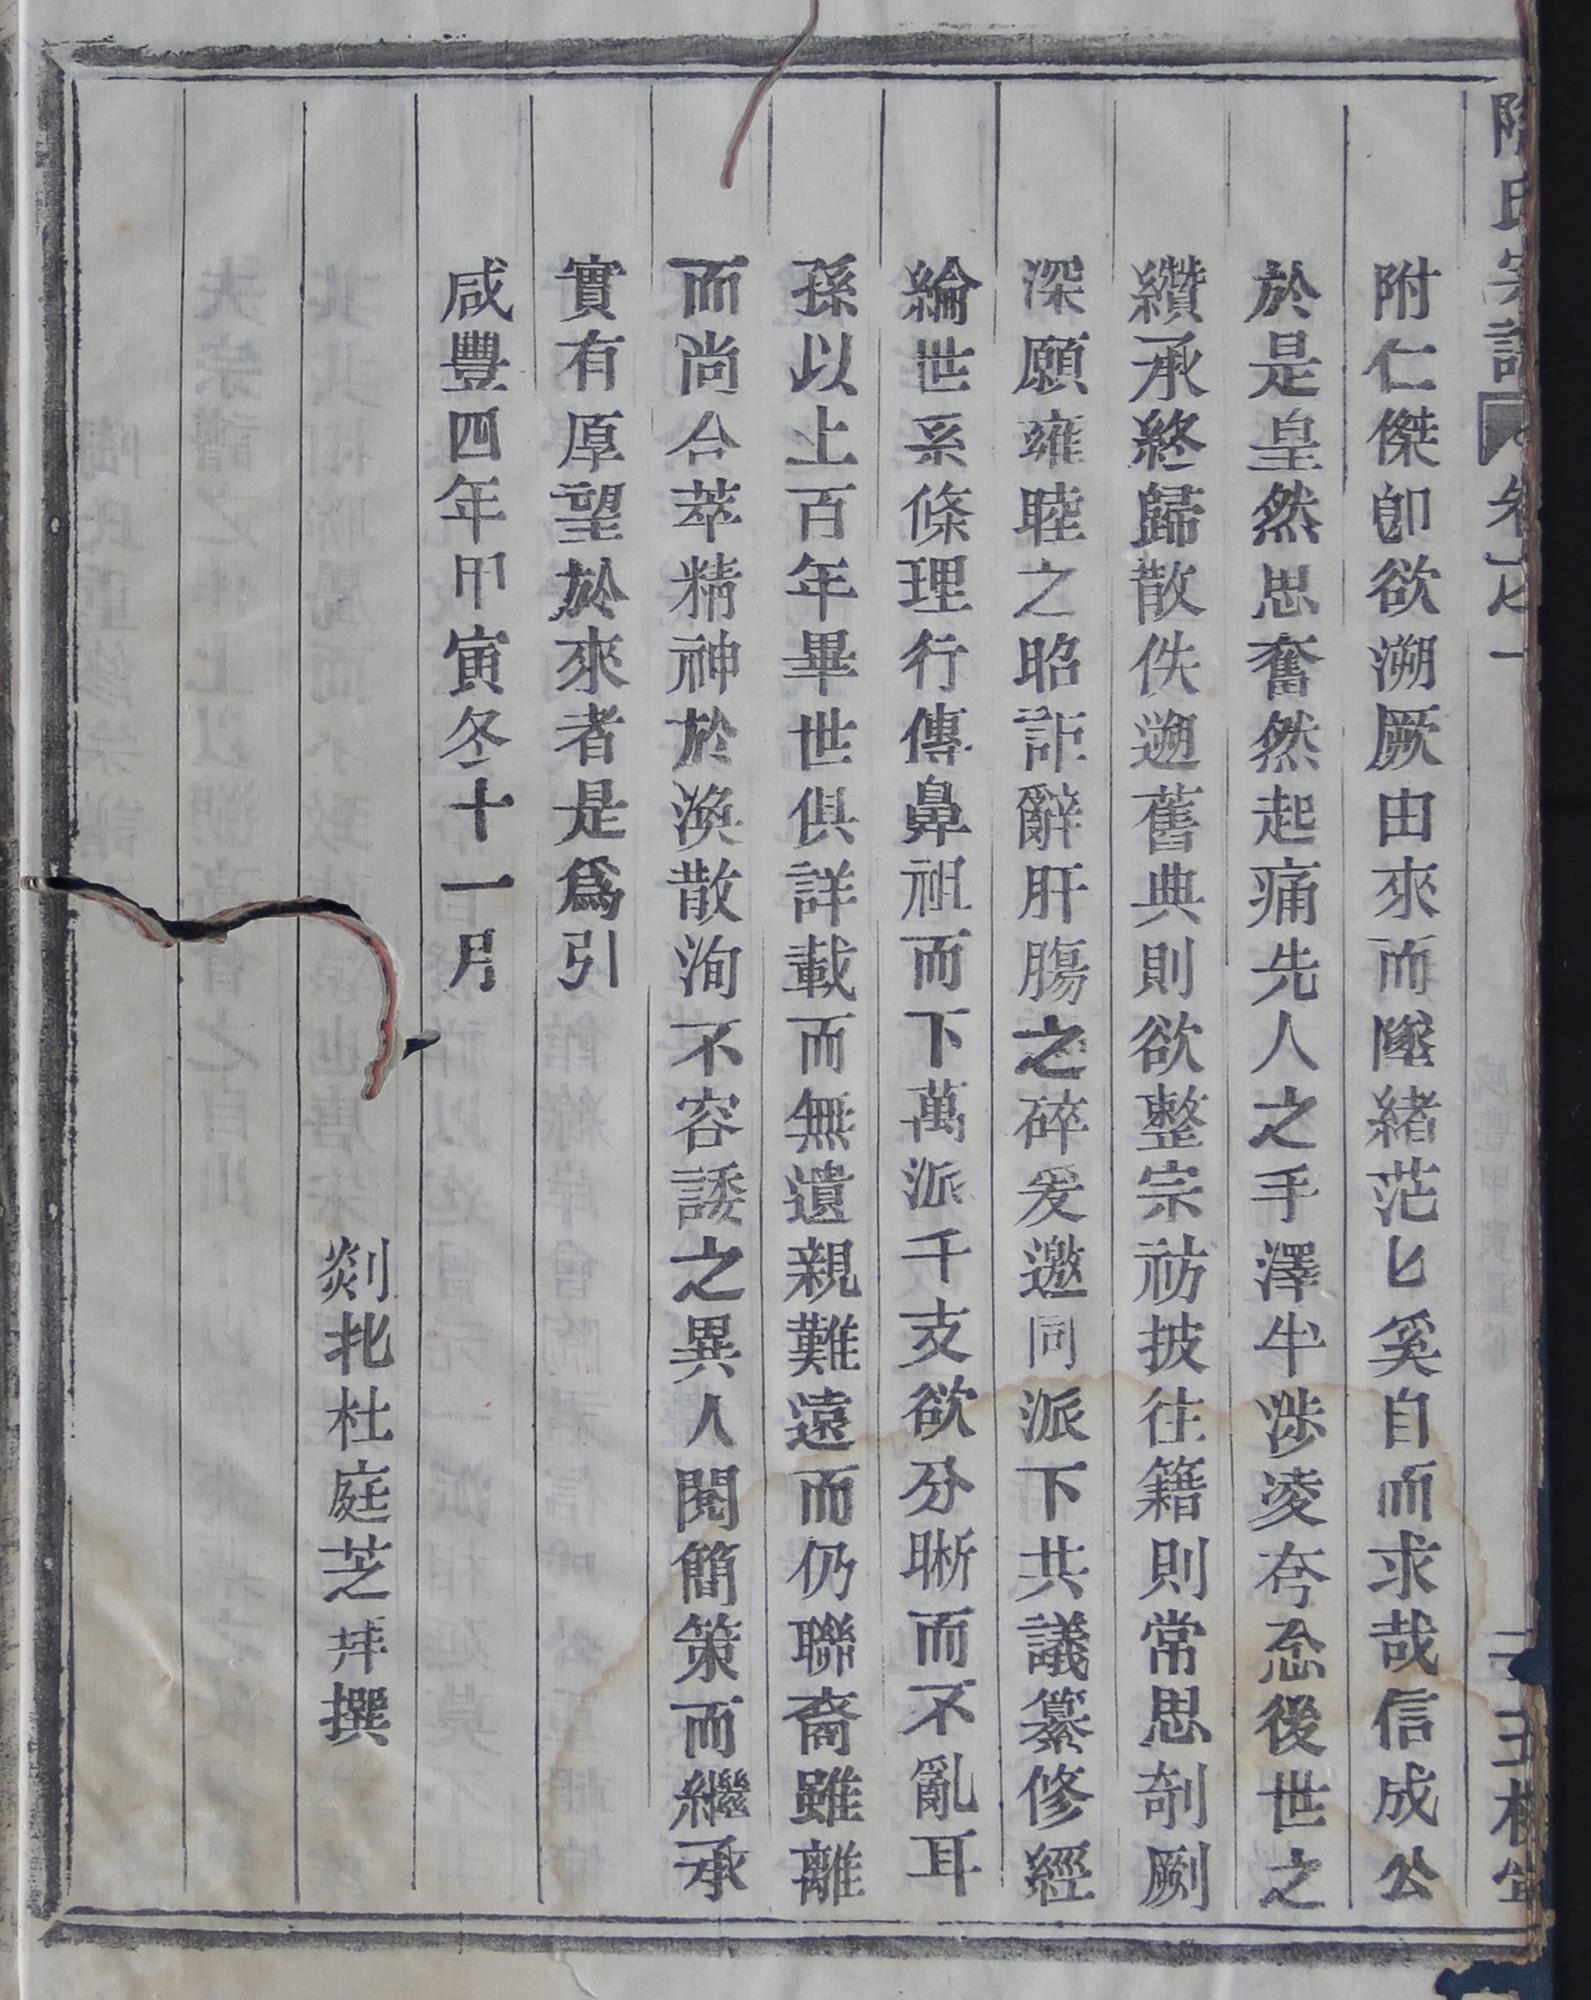 陶氏宗譜 卷之一 二 五桂堂
附仁傑卽欲溯厥由來而墜緒茫匕奚自而求哉信成公
於是皇然思奮然起痛先人之手澤半涉凌夸念後世之
纘承終歸散佚遡舊典則欲整宗祊披往籍則常思剞劂
深願雍睦之昭詎辭肝腸之碎爰邀同派下共議纂修經
綸世系條理行傳鼻祖而下萬派千支欲分晰而不亂耳
孫以上百年畢世俱詳載而無遺親難遠而仍聯裔雖離
而尚合萃精神於渙散洵不容諉之異人閱簡策而繼承
實有厚望於來者是爲引
咸豐四年甲寅冬十一月
剡北杜庭芝拜撰